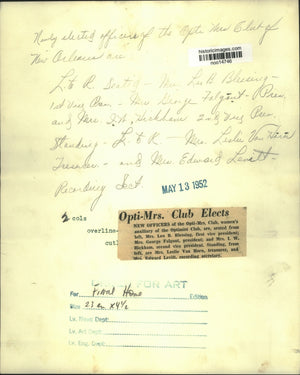 Newly elected officers of the Opti Mrs Club of
New Orleans are
historicimages.com
L to R. Seated - Mrs. Leo B. Blessing -
1st Vice Pres. - Mrs George Falgout - Pres.
and Mrs. I. W. Hickham 2nd Vice Pres.
Standing - L to R - Mrs. Leslie Van Horn
Treasurer - and Mrs. Edward Levitt -
Recording Sect.
MAY 13 1952
2 cols
overline
cutl
Opti-Mrs. Club Elects
NEW OFFICERS of the Opti-Mrs. Club, women's
auxiliary of the Optimist Club, are, seated from
left, Mrs. Leo B. Blessing, first vice president;
Mrs. George Falgout, president; and Mrs. I. W.
Hickham, second vice president. Standing, from
left, are Mrs. Leslie Van Horn, treasurer, and
Mrs. Edward Levitt, recording secretary.
ON ART
For Front Home Edition
Size
Lv. News Dept.
Lv. Art Dept.
Lv. Eng. Dept.